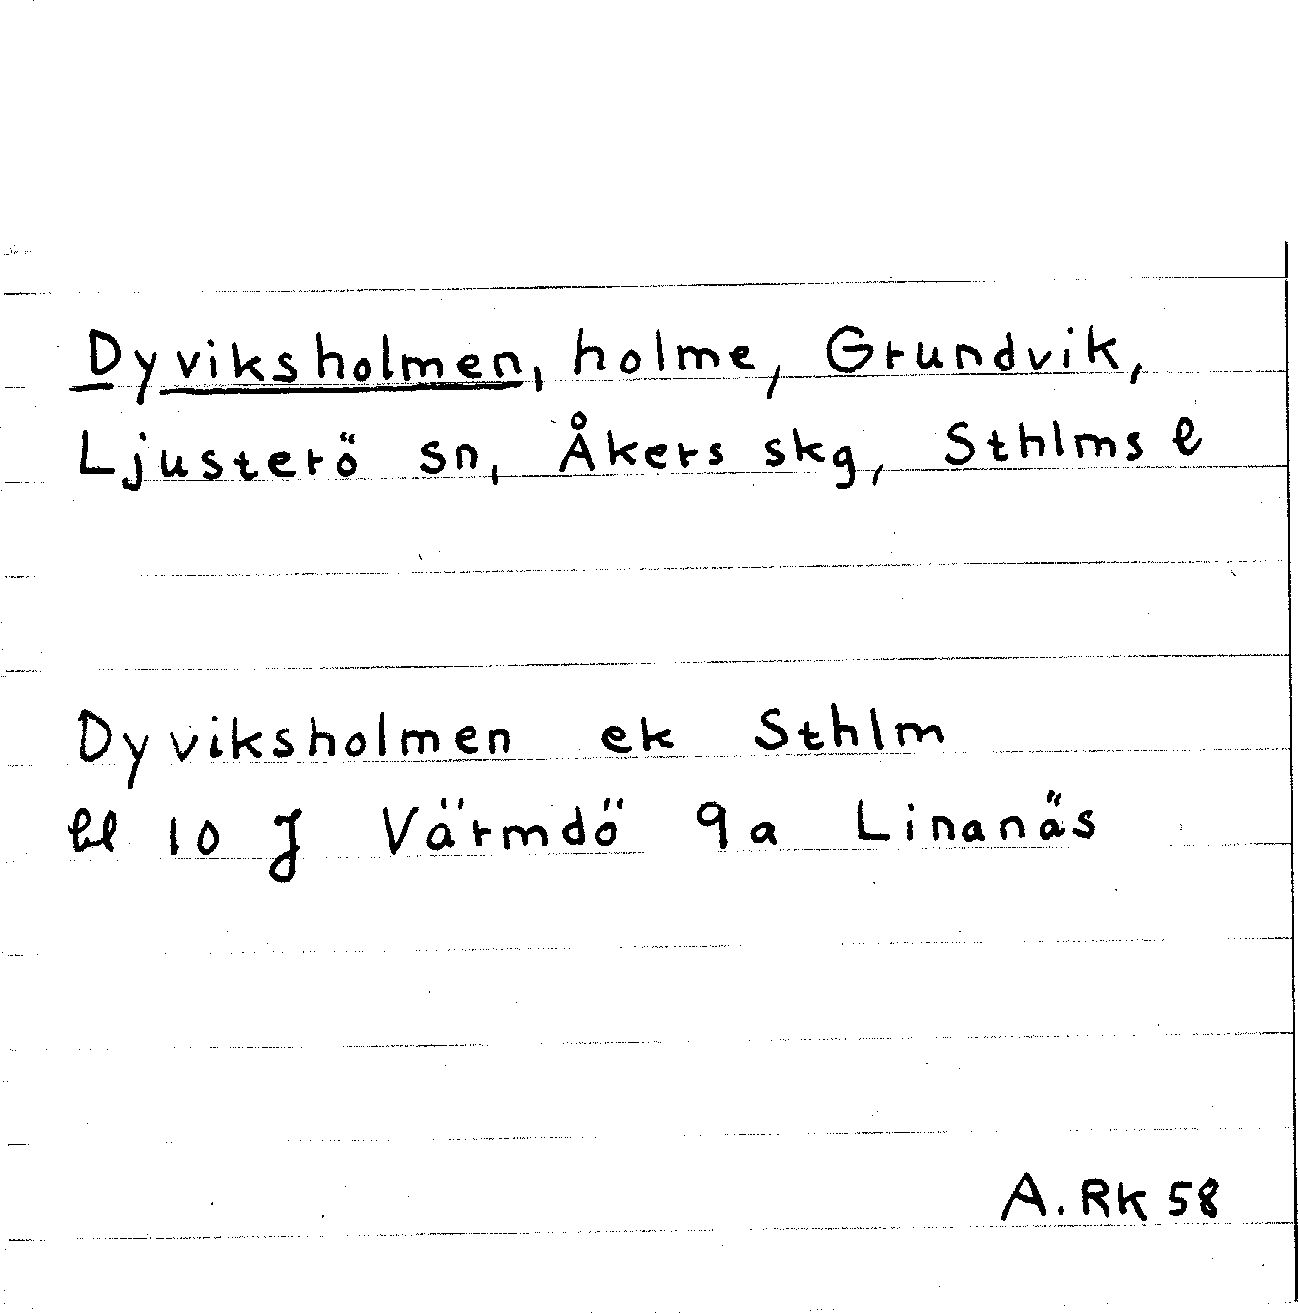 Dyviksholmen, holme, Grundvik,
Ljusterö sn, Åkers skg, Sthlms l
Dyviksholmen ek Sthlm
bl 10 J Värmdö 9a Linanäs
A. RK 58